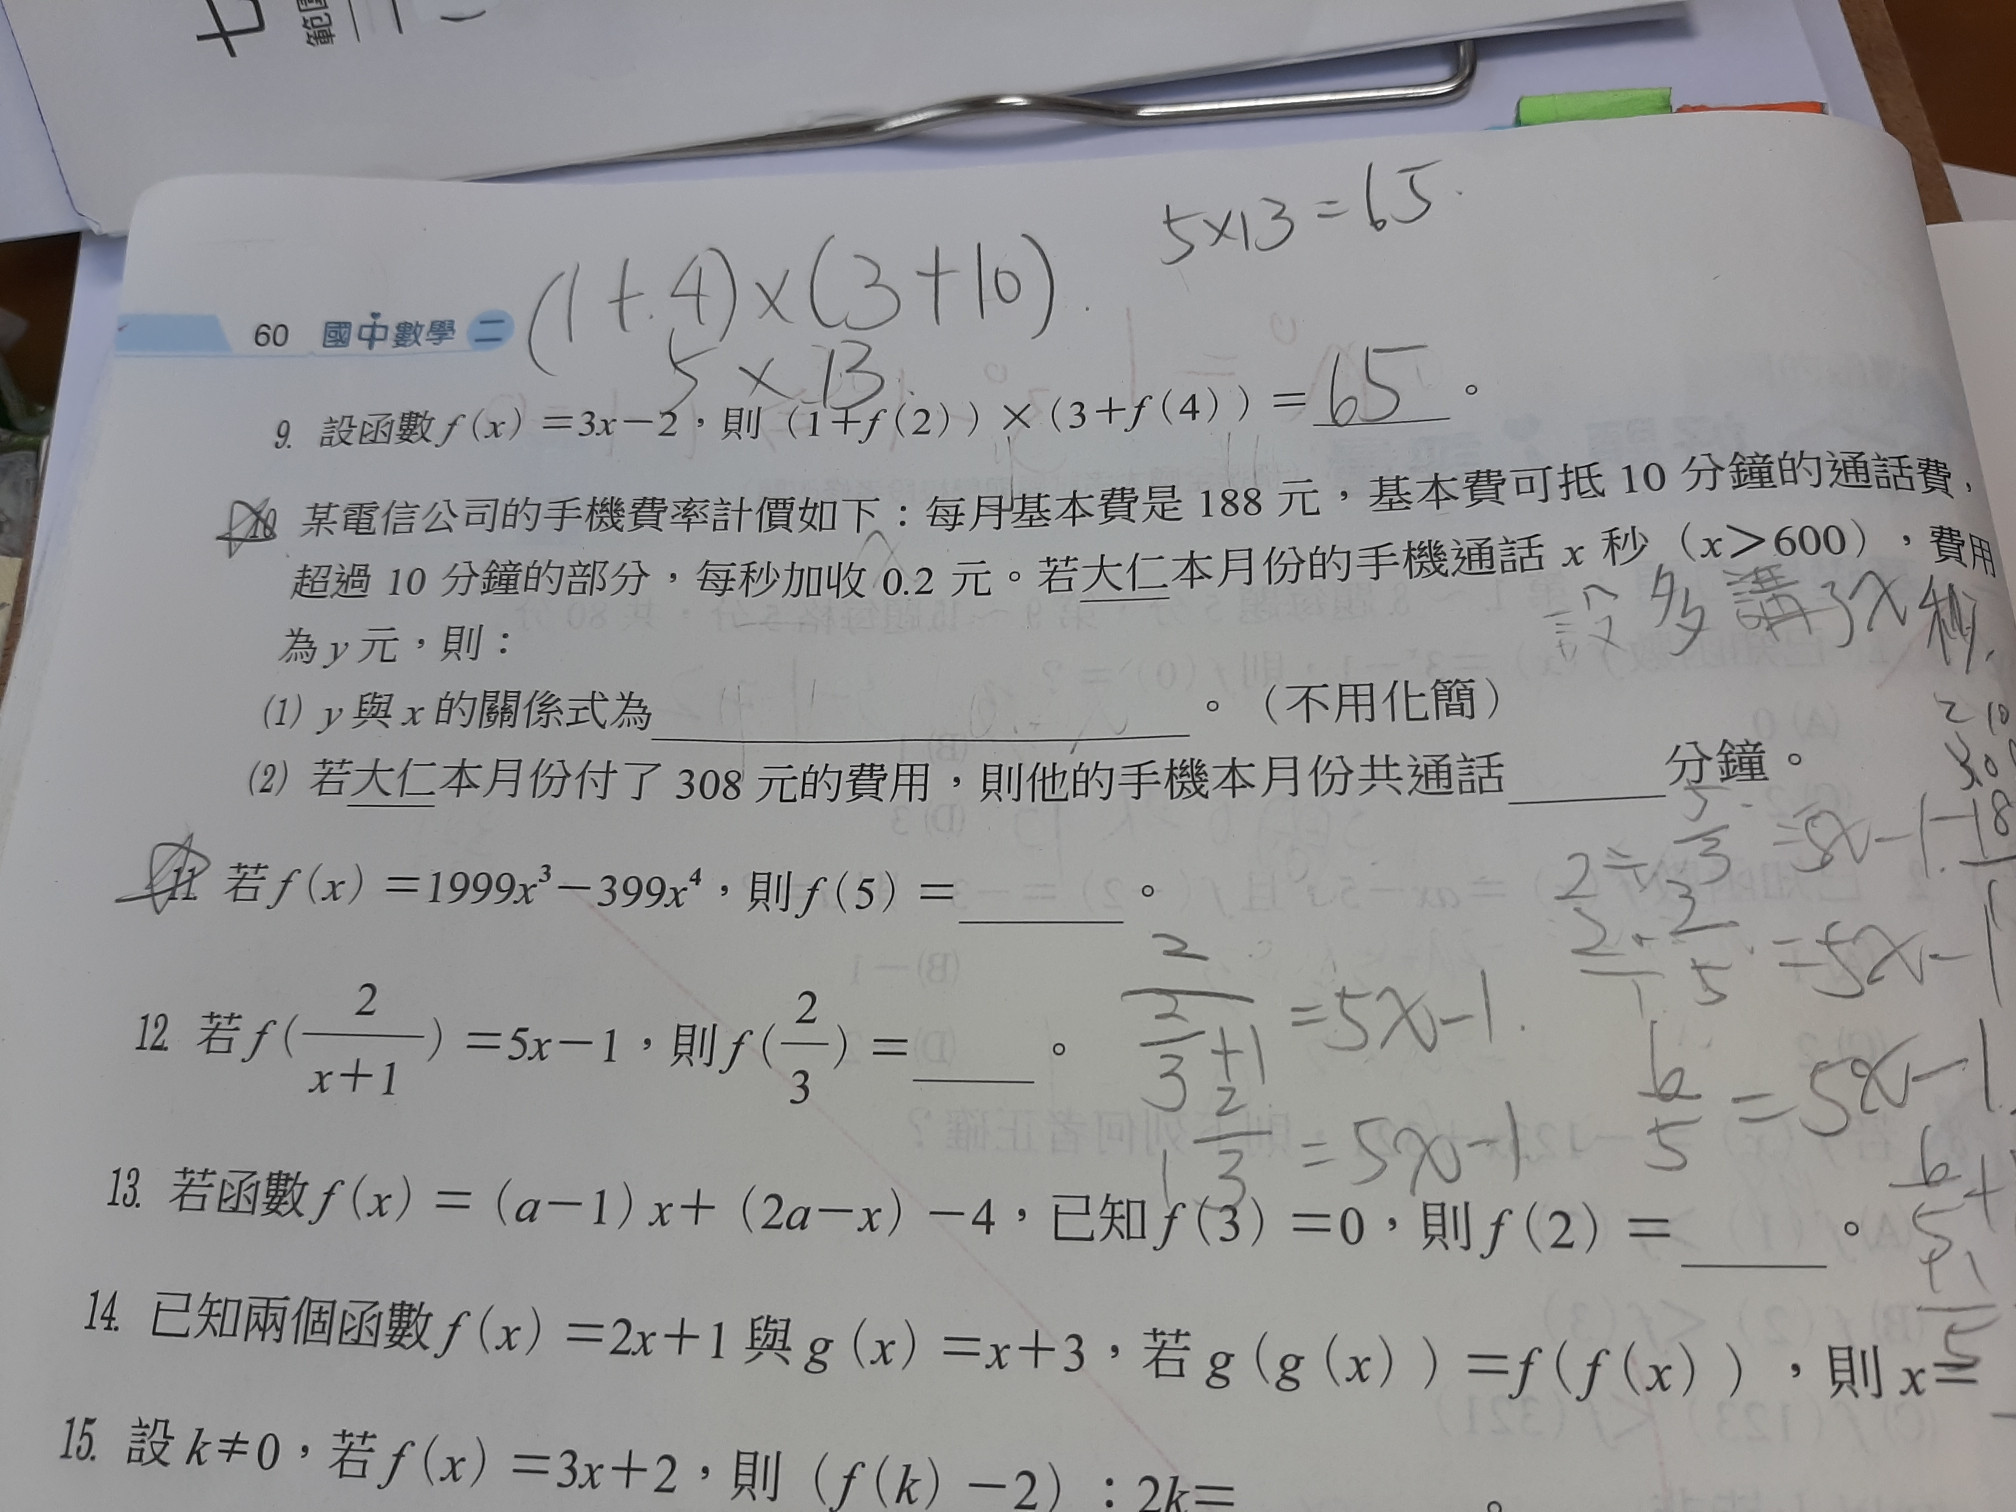 七
範圍
5×13=65.
(1+4)×(3+10).
60 國中數學 二
5×13.
9. 設函數 f(x)=3x-2，則 (1+f(2))×(3+f(4))=65。
10 某電信公司的手機費率計價如下：每月基本費是 188 元，基本費可抵 10 分鐘的通話費，
超過 10 分鐘的部分，每秒加收 0.2 元。若大仁本月份的手機通話 x 秒（x>600），費用
設多講了x秒,
為 y 元，則：
(1) y 與 x 的關係式為____。（不用化簡）
(2) 若大仁本月份付了 308 元的費用，則他的手機本月份共通話____分鐘。
2÷5/3=5x-1
11 若 f(x)=1999x³-399x⁴，則 f(5)=____。
2/1·3/5=5x-1
12 若 f(2/(x+1))=5x-1，則 f(2/3)=____。
2/(2/3+1)=5x-1.
6/5=5x-1.
1 2/3=5x-1
13. 若函數 f(x)=(a-1)x+(2a-x)-4，已知 f(3)=0，則 f(2)=____。
14. 已知兩個函數 f(x)=2x+1 與 g(x)=x+3，若 g(g(x))=f(f(x))，則 x=
15. 設 k≠0，若 f(x)=3x+2，則 (f(k)-2)：2k=____。